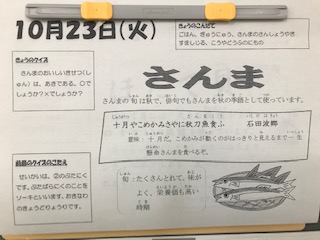 10月23日(火)
きょうのこんだて
ごはん、ぎゅうにゅう、さんまのさんしょうやき
すましじる、こうやどうふのにもの
きょうのクイズ
さんまのおいしいきせつ(し
ゅん)は、あきである。〇で
しょうか?×でしょうか?
さんま
さんまの旬は秋で、俳句でもさんまを秋の季語として使っています。
十月やこめかみさやに秋刀魚食ふ 石田波郷
意味:十月だ。こめかみが動くのがはっきりと見えるまで一生
懸命さんまを食べるぞ。
前回のクイズのこたえ
せいかいは、②のぶたにく
です。ぶたばらにくのことを
ソーキといいます。おきなわ
のきょうどりょうりです。
旬:たくさんとれて、味が
よく、栄養価も高い
時期